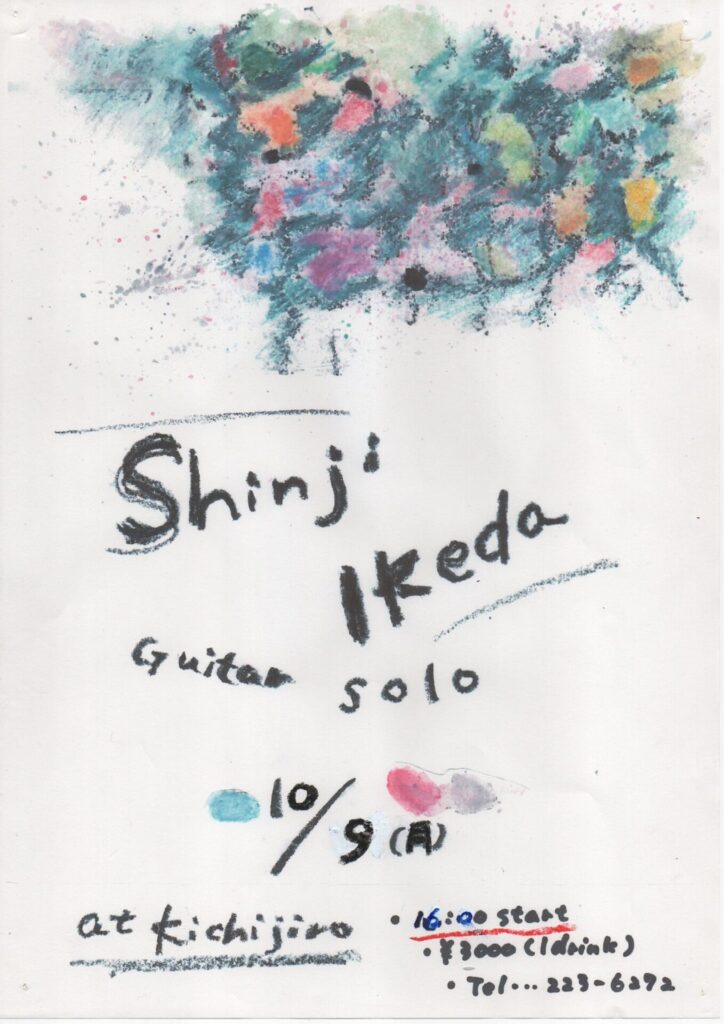 Shinji
Ikeda
Guitar solo
10/9(月)
at Kichijiro
・16:00 start
・¥3000(1drink)
・Tel...223-6272